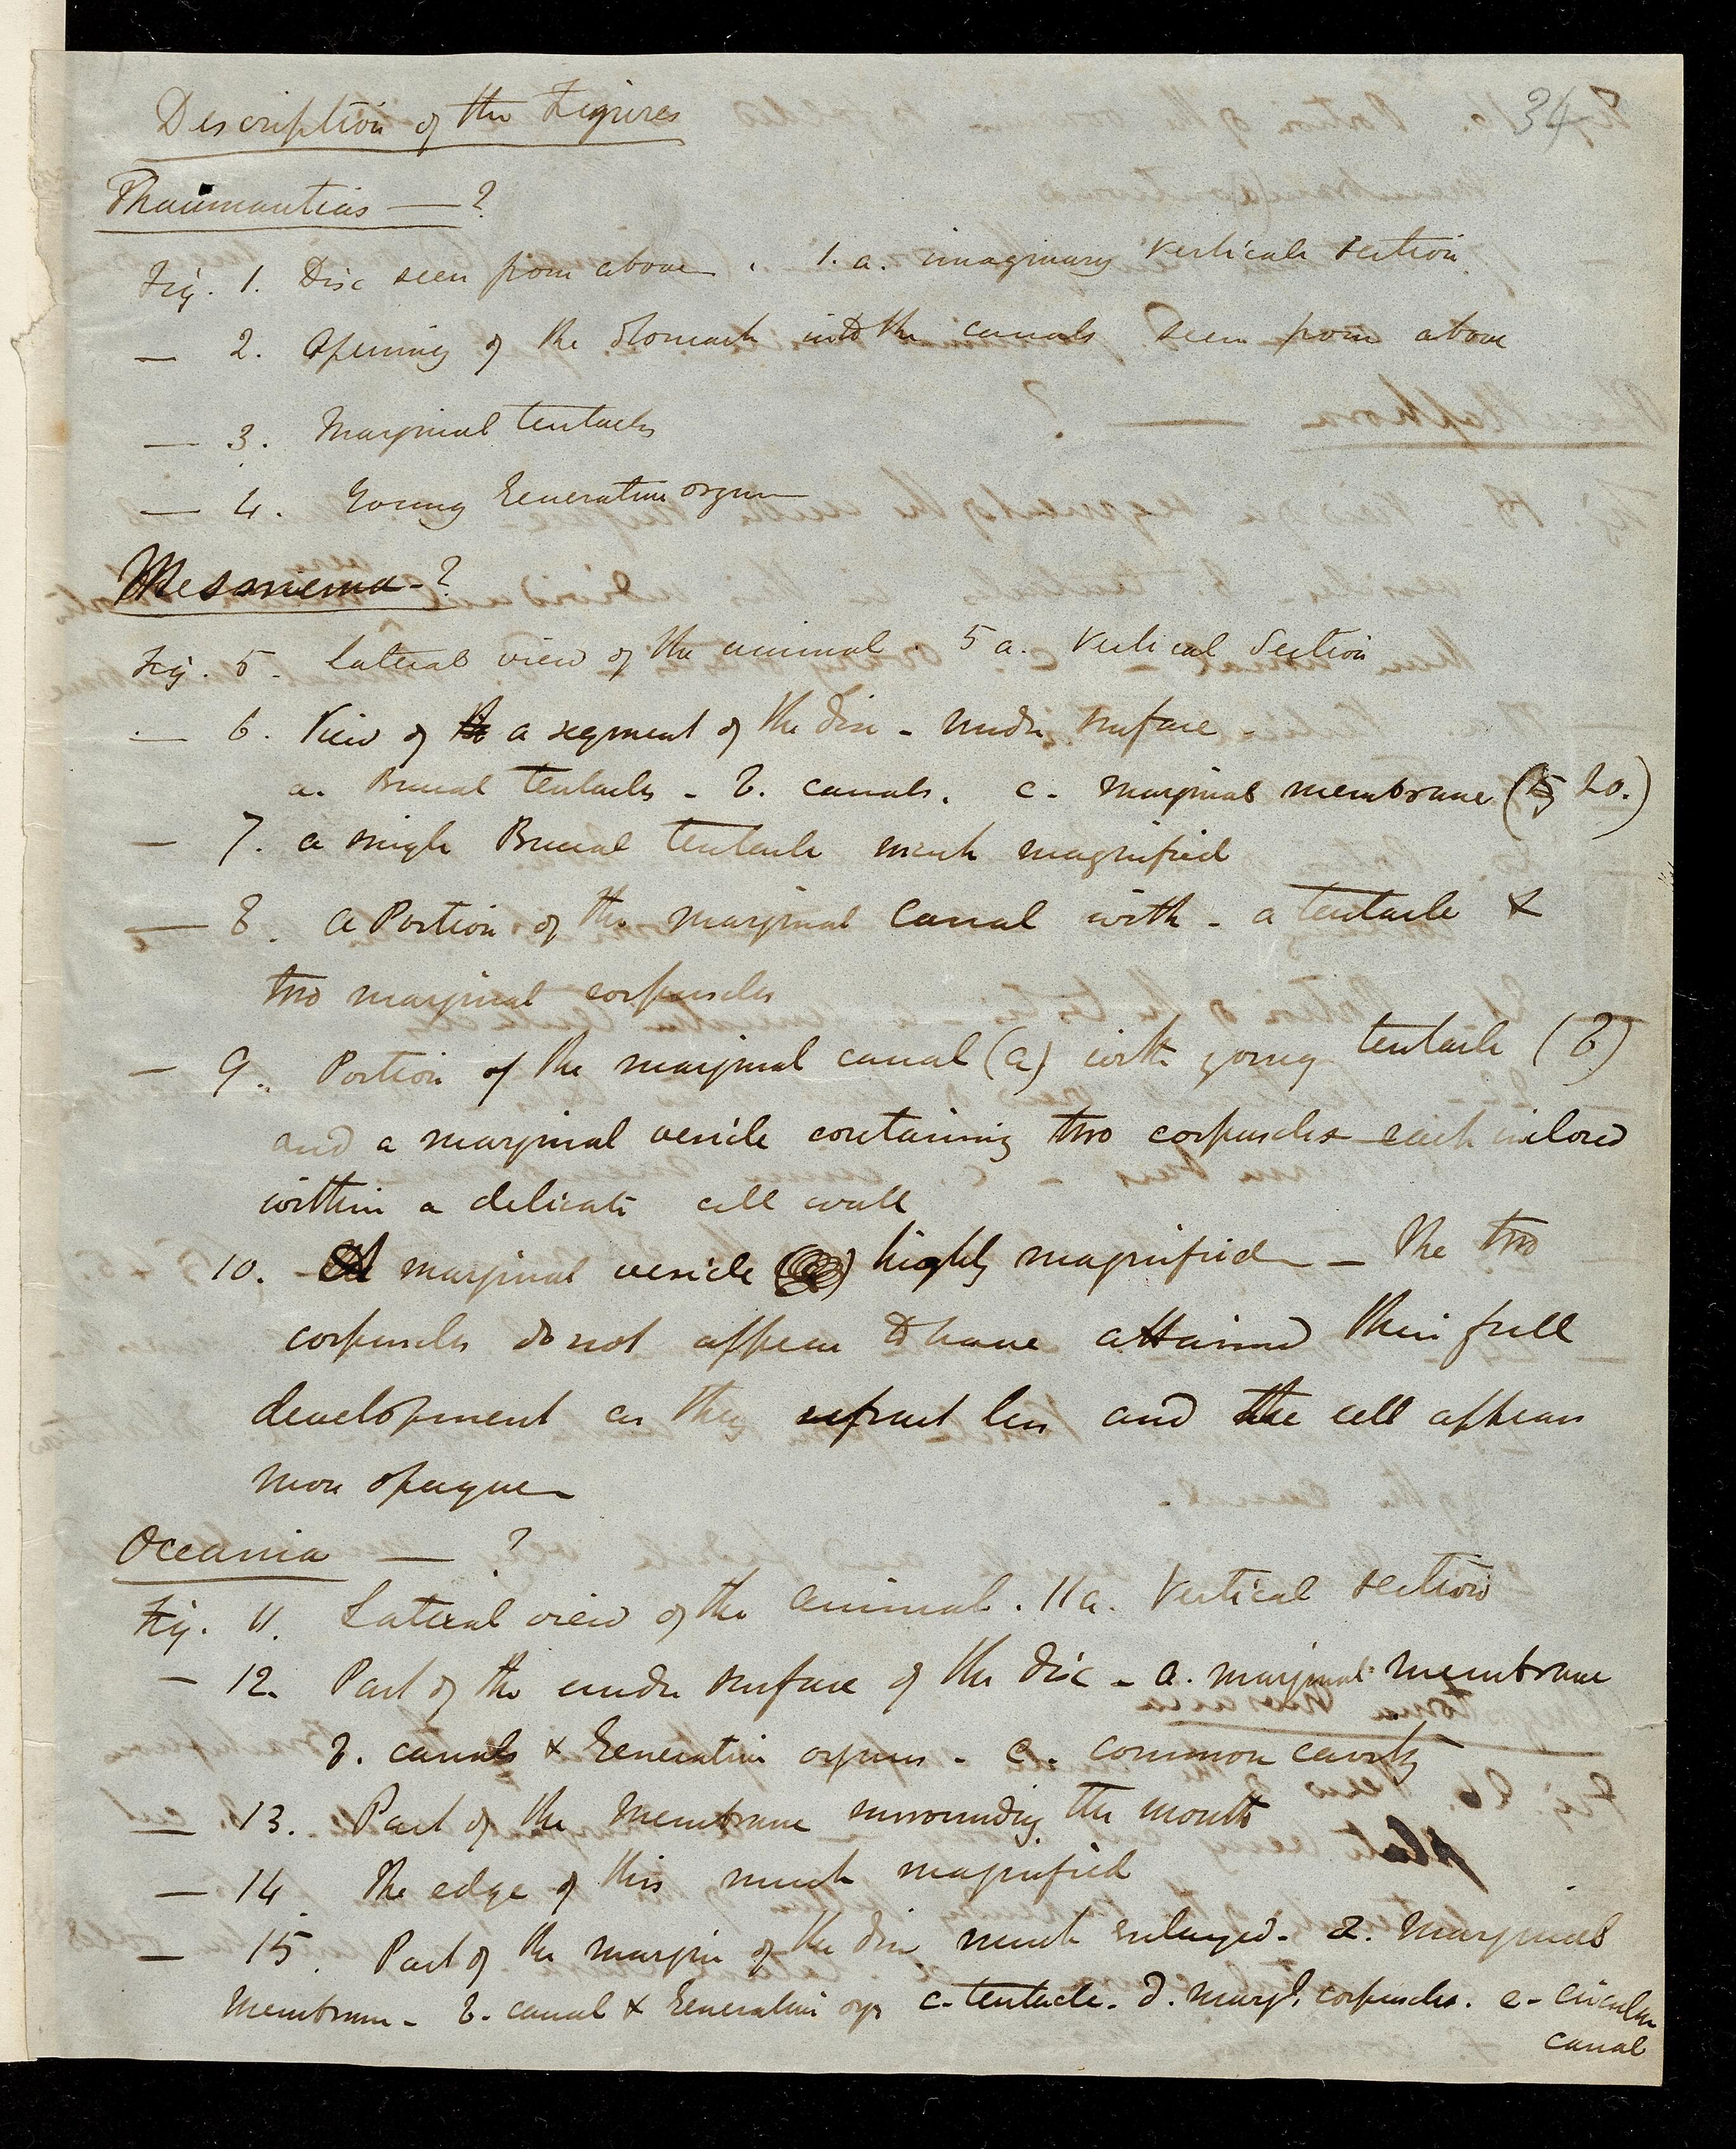 34
Description of the Figures
Thaumantias — ?
Fig. 1. Disc seen from above. 1. a. imaginary vertical section
— 2. Opening of the Stomach into the canals seen from above
— 3. Marginal tentacles
— 4. Young Generative organ
Mesonema - ?
Fig. 5. Lateral view of the animal. 5 a. Vertical Section
— 6. View of a segment of the disc - under surface -
a. Buccal tentacles - b. canals. c. marginal membrane ( 20.)
— 7. a single Buccal tentacle much magnified
— 8. A Portion of the marginal canal with - a tentacle &
two marginal corpuscles
— 9. Portion of the marginal canal (a) with young tentacle (b)
and a marginal vesicle containing two corpuscles each inclosed
within a delicate cell wall
10. A marginal vesicle highly magnified — The two
corpuscles do not appear to have attained their full
development as they refract less and the cell appears
more opaque
Oceania — ?
Fig. 11. Lateral view of the animal. 11 a. Vertical section
— 12. Part of the under surface of the disc - a. marginal membrane
b. canals & Generative organs - c. common cavity
— 13. Part of the membrane surrounding the mouth
— 14 The edge of this much magnified
— 15. Part of the margin of the disc much enlarged - a. Marginal
Membrane - b. canal & Generative orgs c. tentacle. d. margl. corpuscles. e - circular
canal